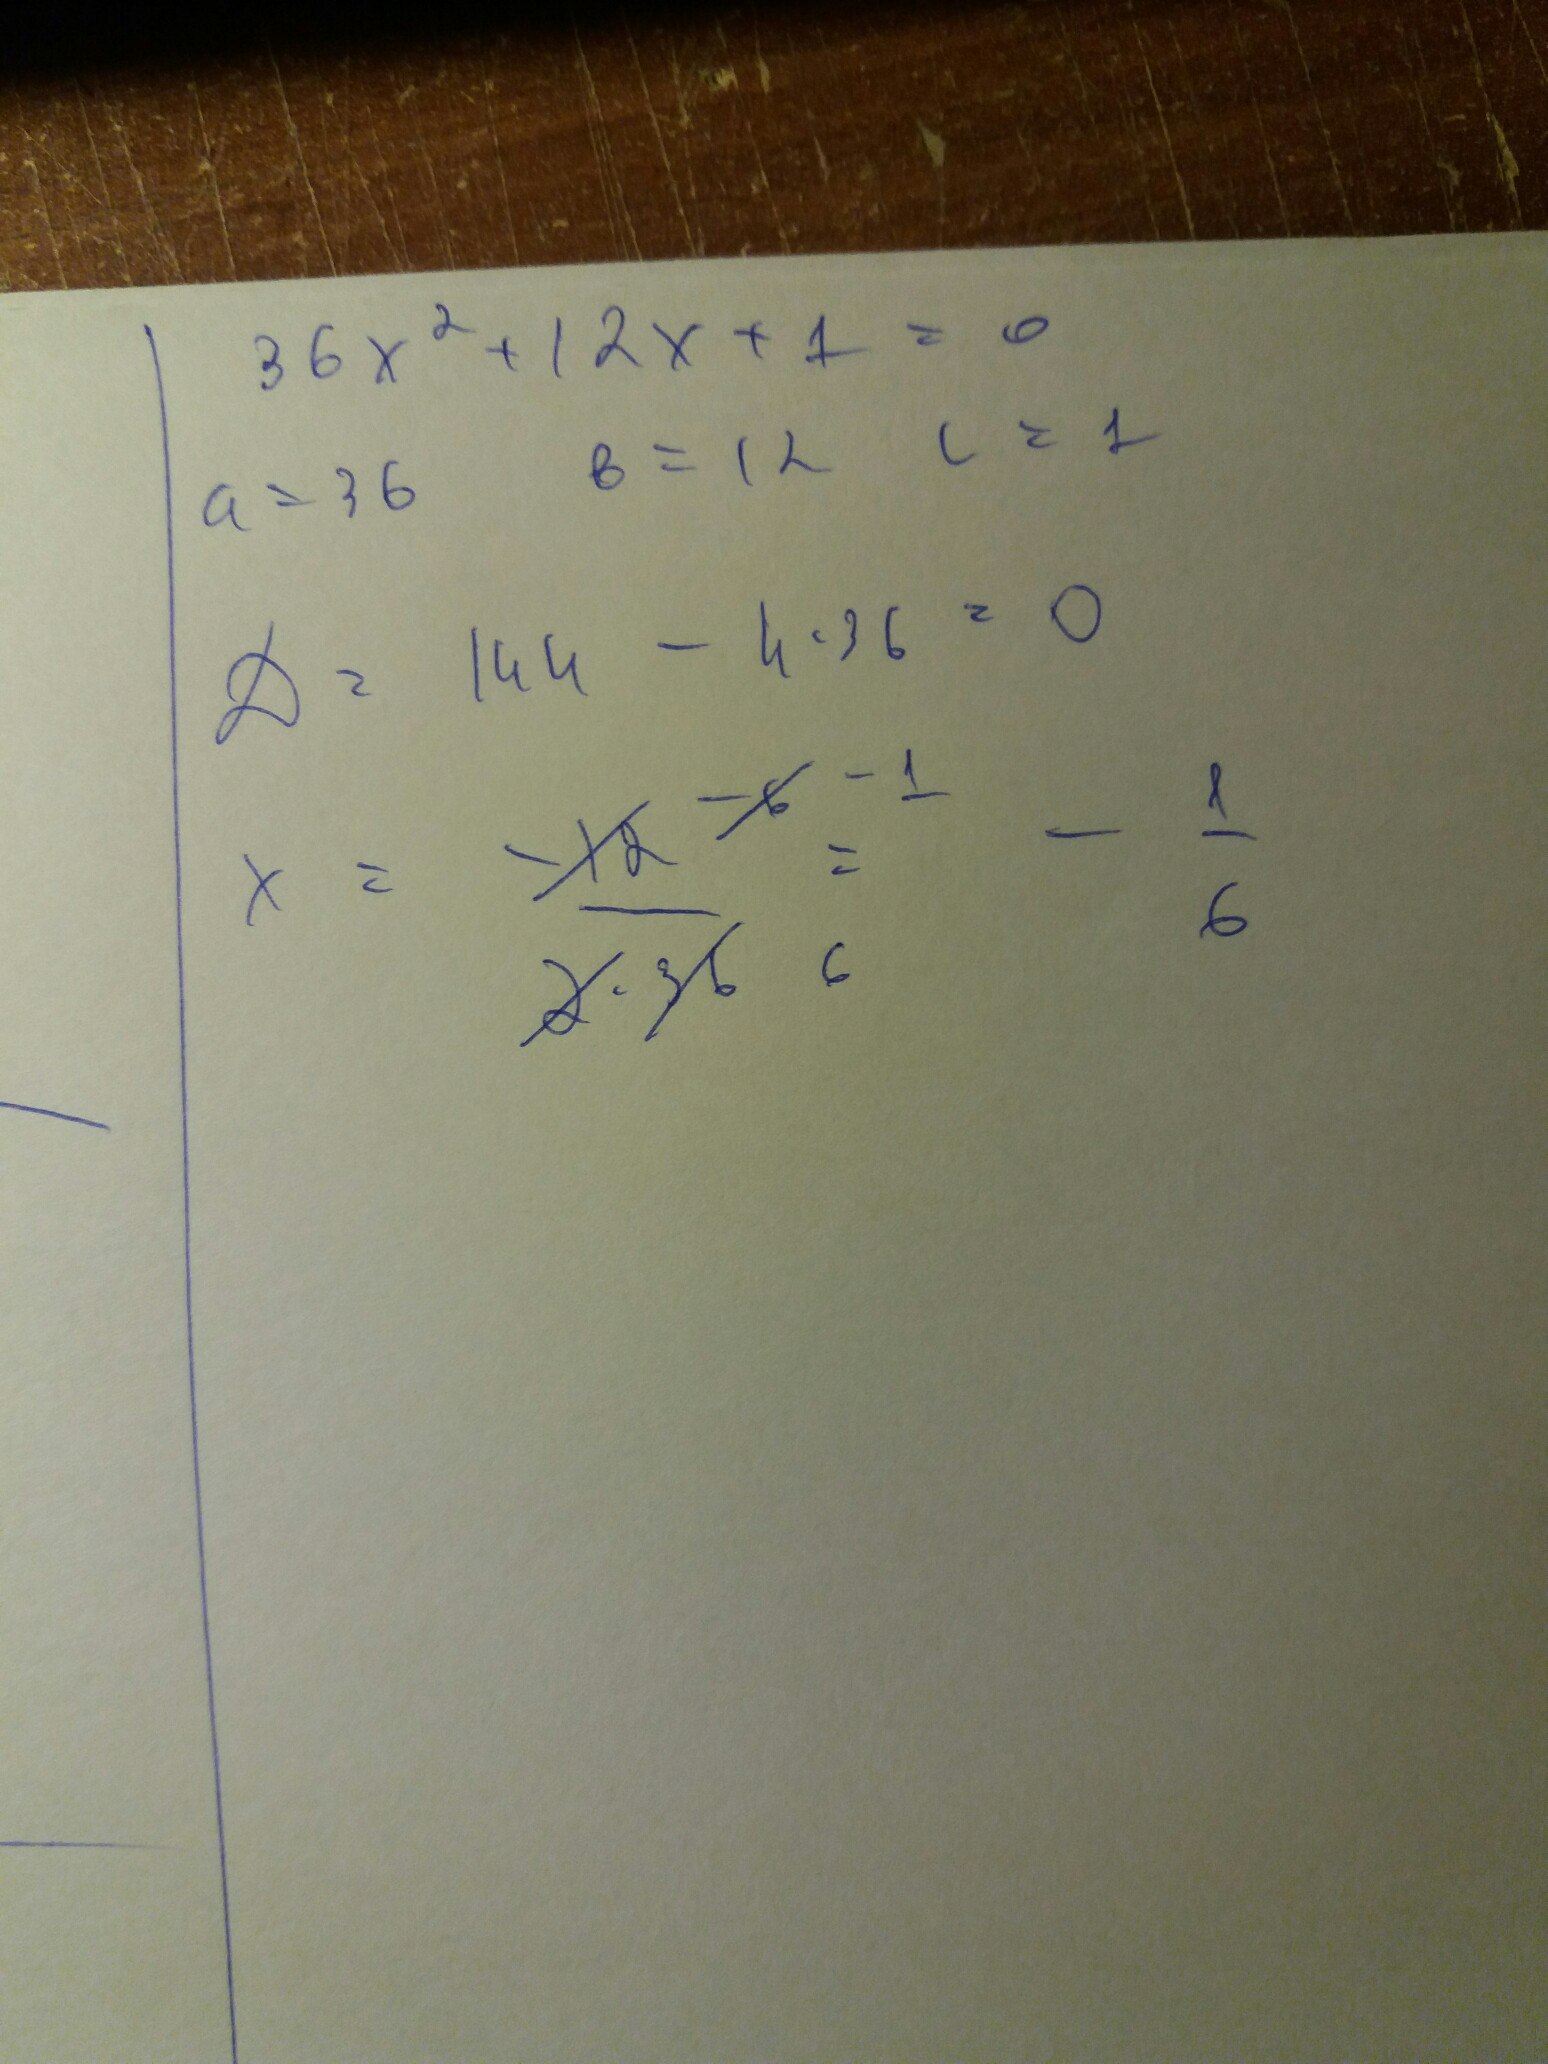 36x² + 12x + 1 = 0
a = 36 в = 12 c = 1
D = 144 - 4·36 = 0
x = -12 -6 -1 / 2·36 6 = - 1/6